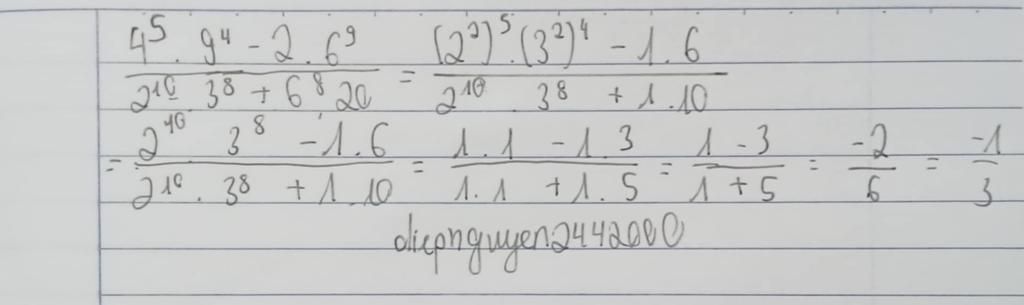 4⁵. 9⁴ - 2. 6⁹ / 2¹⁰. 3⁸ + 6⁸ 20 = (2²)⁵.(3²)⁴ - 1.6 / 2¹⁰ 3⁸ + 1.10
= 2¹⁰ 3⁸ - 1.6 / 2¹⁰. 3⁸ + 1.10 = 1.1 - 1.3 / 1.1 + 1.5 = 1 - 3 / 1 + 5 = -2 / 6 = -1 / 3
diepnguyen2442000